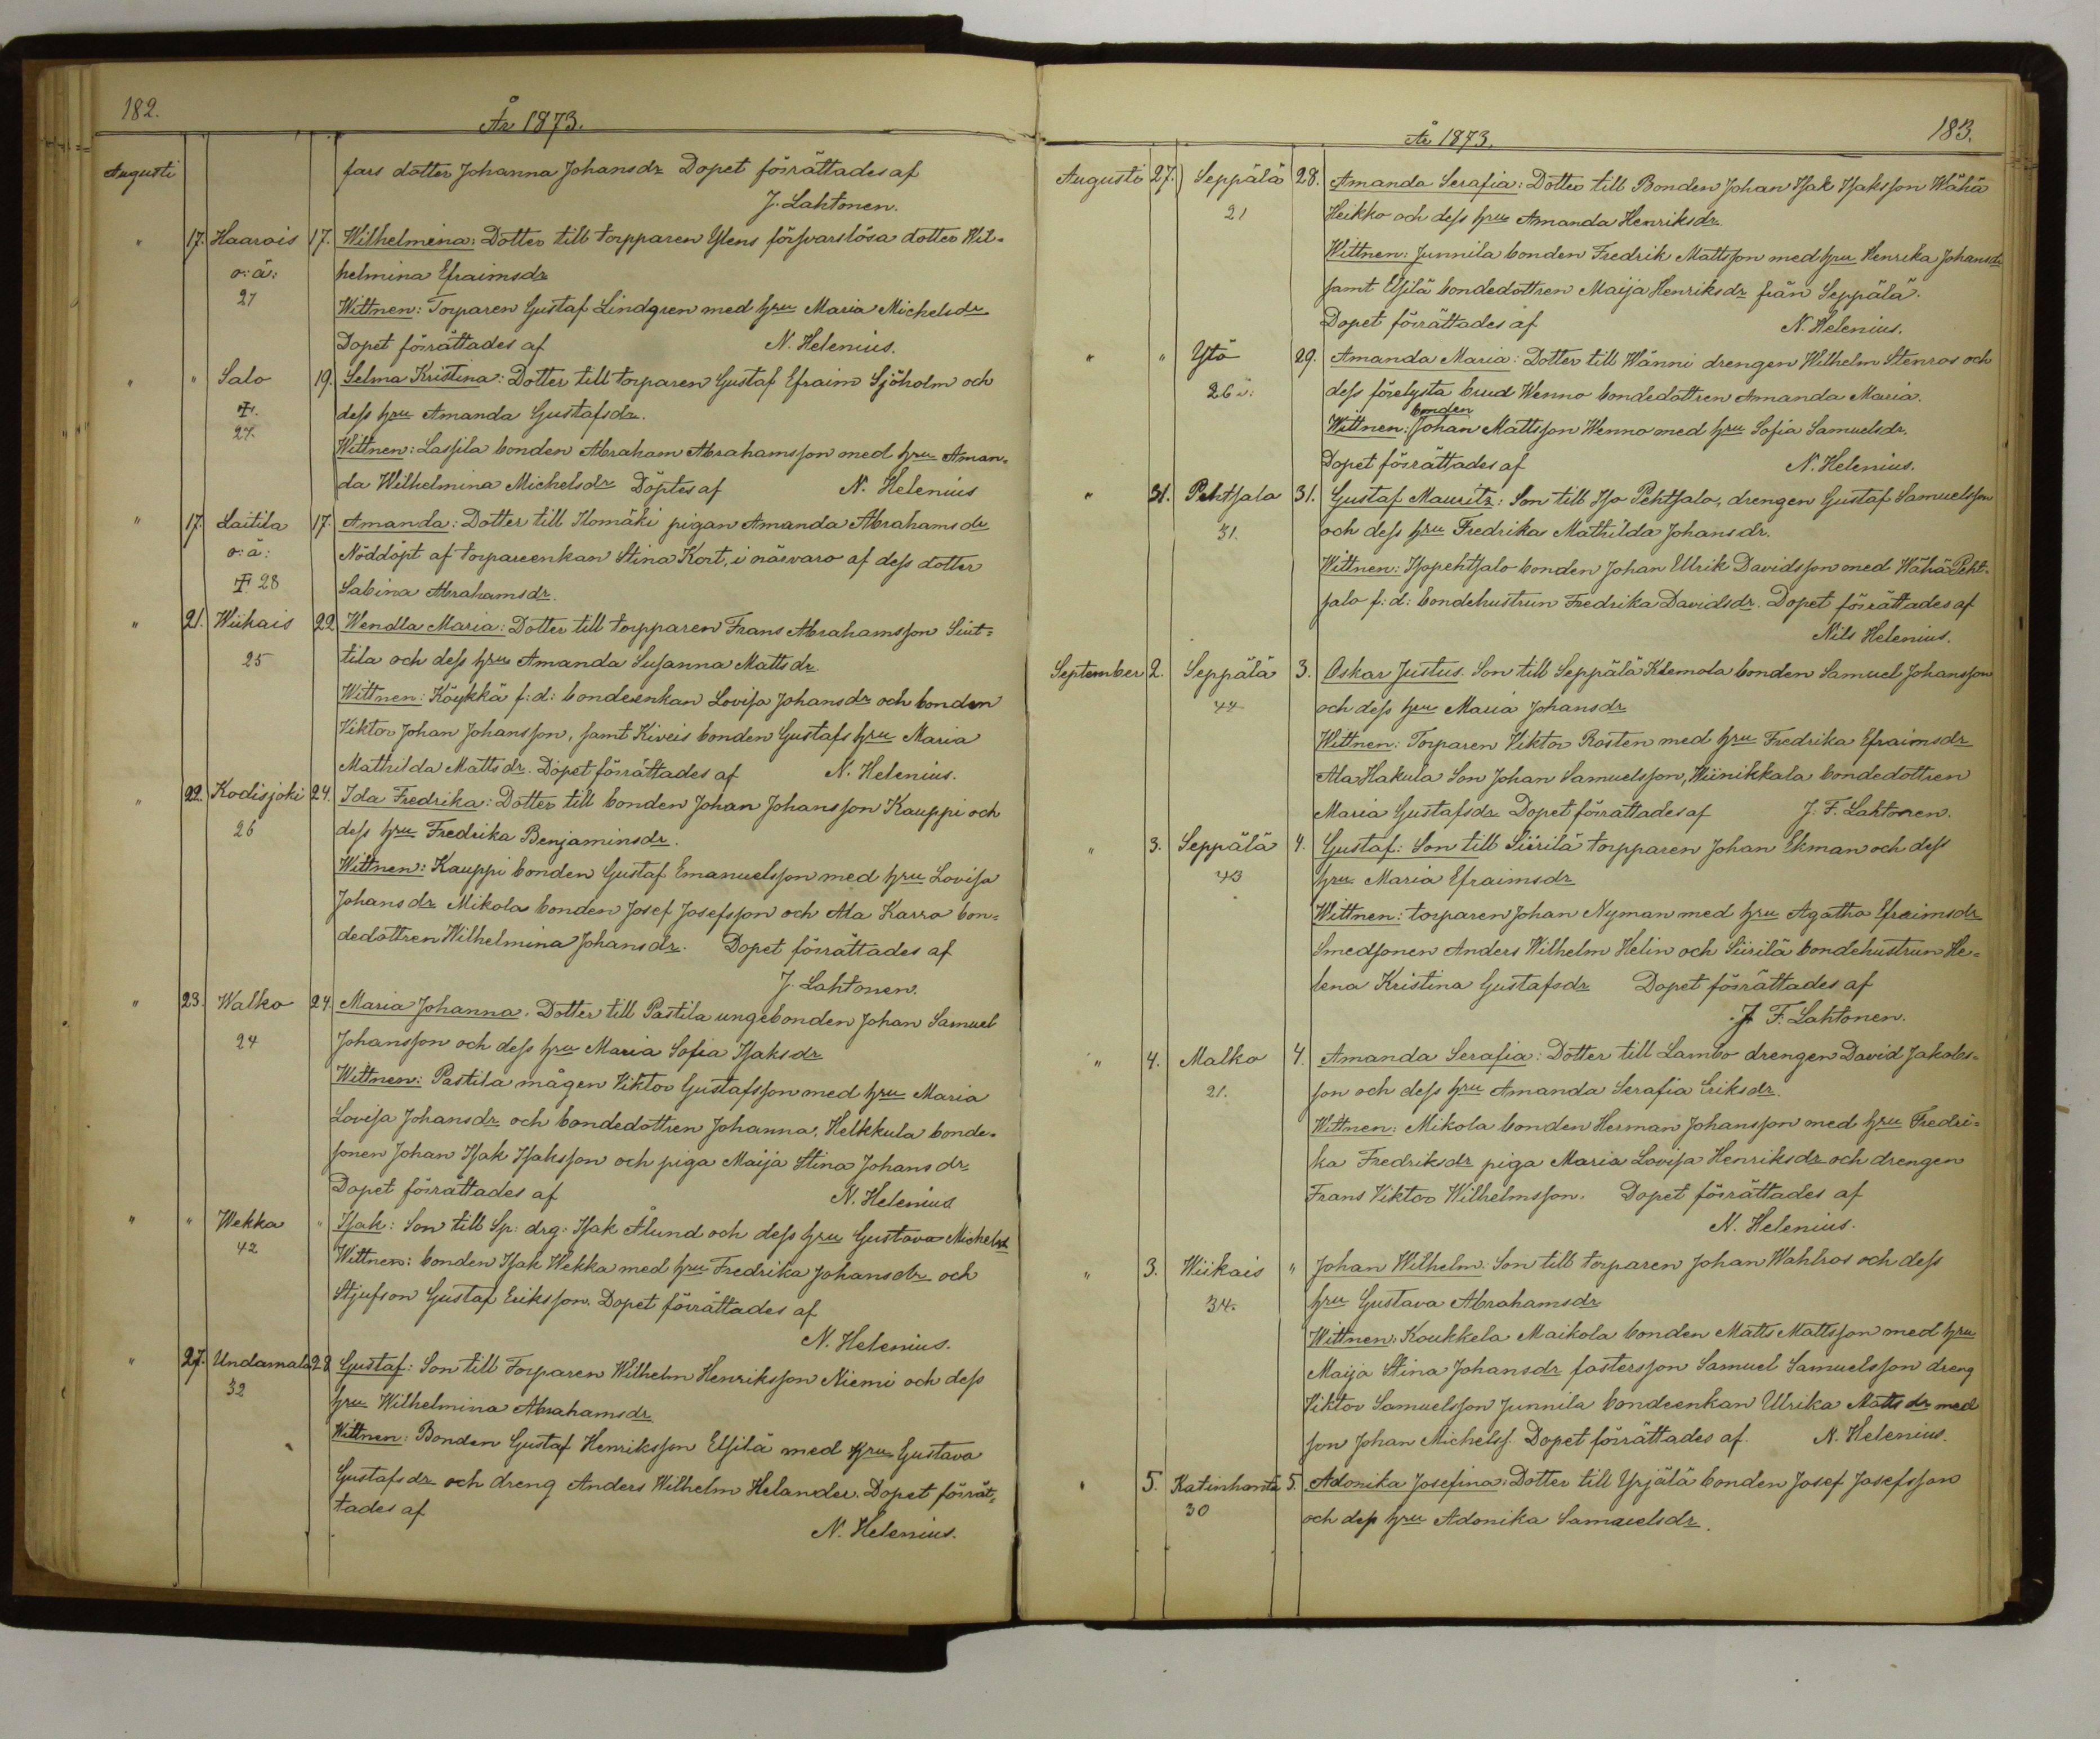 182.
År 1873.
Augusti fars dotter Johanna Johansdr Dopet förrättades af
J. Lahtonen.
" 17. Haarois 17. Wilhelmina: Dotter till torpparen Ylens försvarslösa dotter Wil-
o: ä: helmina Efraimsdr
27 Wittnen: Torparen Gustaf Lindgren med hru Maria Michelsdr
Dopet förrättades af N. Helenius.
" " Salo 19. Selma Kristina: Dotter till torparen Gustaf Efraim Sjöholm och
dess hru Amanda Gustafsdr.
27. Wittnen: Lassila bonden Abraham Abrahamsson med hru Aman-
da Wilhelmina Michelsdr Döptes af N. Helenius
" 17. Laitila 17. Amanda: Dotter till Komäki pigan Amanda Abrahamsdr
o: ä: Nöddöpt af torpareenkan Stina Kort, i närvaro af dess dotter
28 Sabina Abrahamsdr.
" 21. Wiikais 22 Wendla Maria: Dotter till torpparen Frans Abrahamsson Sint-
25 tila och dess hru Amanda Susanna Mattsdr.
Wittnen: Köykkä f: d: bondeenkan Lovisa Johansdr och bonden
Viktor Johan Johansson, samt Kiveis bonden Gustafs hru Maria
Mathilda Mattsdr. Dopet förrättades af N. Helenius.
" 22. Kodisjoki 24. Ida Fredrika: Dotter till bonden Johan Johansson Kauppi och
26 dess hru Fredrika Benjaminsdr.
Wittnen: Kauppi bonden Gustaf Emanuelsson med hru Lovisa
Johansdr Mikola bonden Josef Josefsson och Ala Karro bon-
dedottren Wilhelmina Johansdr. Dopet förrättades af
J. Lahtonen.
" 23. Walko 24. Maria Johanna. Dotter till Pastila ungebonden Johan Samuel
24 Johansson och dess hru Maria Sofia Isaksdr
Wittnen: Pastila mågen Viktor Gustafsson med hru Maria
Lovisa Johansdr och bondedottren Johanna, Helkkula bonde-
sonen Johan Isak Isaksson och piga Maija Stina Johansdr.
Dopet förrättades af N. Helenius
" " Wekka " Isak: Son till Sp: drg: Isak Ålund och dess hru Gustava Michelsd
42 Wittnen: bonden Isak Wekka med hru Fredrika Johansdr och
Stjufson Gustaf Eriksson. Dopet förrättades af
N. Helenius.
" 27. Undamala 28 Gustaf: Son till Torparen Wilhelm Henriksson Niemi och dess
32 hru Wilhelmina Abrahamsdr
Wittnen: Bonden Gustaf Henriksson Elsilä med hru Gustava
Gustafsdr och dreng Anders Wilhelm Helander. Dopet förrät-
tades af
N. Helenius.
År 1873. 183.
Augusti 27. Seppälä 28. Amanda Serafia: Dotter till Bonden Johan Isak Isaksson Wähä
21 Heikko och dess hru Amanda Henriksdr.
Wittnen: Junnila bonden Fredrik Mattsson med hru Henrika Johansdr
samt Elsilä bondedottren Maija Henriksdr från Seppälä.
Dopet förrättades af N. Helenius.
" " Ytö 29. Amanda Maria: Dotter till Wänni drengen Wilhelm Stenros och
26 dess förelysta brud Wenno bondedottren Amanda Maria.
bonden
Wittnen: Johan Mattsson Wenno med hru Sofia Samuelsdr.
Dopet förrättades af N. Helenius.
" 31. Pehtsalo 31. Gustaf Mauritz: Son till Iso Pehtsalo, drengen Gustaf Samuelsson
31. och dess hru Fredrika Mathilda Johansdr.
Wittnen: Isopehtsalo bonden Johan Ulrik Davidsson med Wähä Peht-
salo f: d: bondehustrun Fredrika Davidsdr. Dopet förrättades af
Nils Helenius.
September 2. Seppälä 3. Oskar Justus. Son till Seppälä Klemola bonden Samuel Johansson
44 och dess hru Maria Johansdr
Wittnen: Torparen Viktor Rosten med hru Fredrika Efraimsdr
Ala Hakula Son Johan Samuelsson, Wiinikkala bondedottren
Maria Gustafsdr Dopet förrättades af J. F. Lahtonen.
" 3. Seppälä 4. Gustaf: Son till Siirilä torpparen Johan Ekman och dess
43 hru Maria Efraimsdr
Wittnen: torparen Johan Nyman med hru Agatha Efraimsdr
Smedsonen Anders Wilhelm Helin och Siirilä bondehustrun He-
lena Kristina Gustafsdr Dopet förrättades af
J. F. Lahtonen.
" 4. Malko 4. Amanda Serafia: Dotter till Lambo drengen David Jakobs-
21. son och dess hru Amanda Serafia Eriksdr.
Wittnen: Mikola bonden Herman Johansson med hru Fredri-
ka Fredriksdr piga Maria Lovisa Henriksdr och drengen
Frans Viktor Wilhelmsson. Dopet förrättades af
N. Helenius.
" 3. Wiikais " Johan Wilhelm: Son till torparen Johan Wahlros och dess
34. hru Gustava Abrahamsdr
Wittnen: Koukkela Maikola bonden Matts Mattsson med hru
Maija Stina Johansdr fostersson Samuel Samuelsson dreng
Viktor Samuelsson Junnila bondeenkan Ulrika Mattsdr med
son Johan Michelss. Dopet förrättades af. N. Helenius.
" 5. Katinhanta 5. Adonika Josefina: Dotter till Yrjälä bonden Josef Josefsson
30 och dess hru Adonika Samuelsdr.